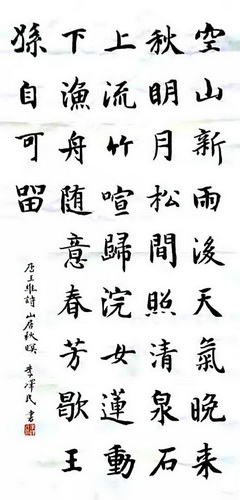 空山新雨後天氣晚来
秋明月松間照清泉石
上流竹喧歸浣女蓮動
下漁舟随意春芳歇王
孫自可留
唐王維詩山居秋暝李澤民書